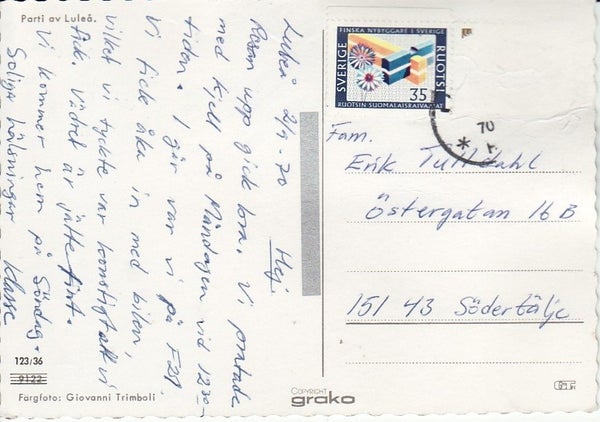 Parti av Luleå.
Luleå 2/9 -70 Hej.
Resan upp gick bra. Vi pratade
med Kjell på Måndagen vid 1230-
tiden. I går var vi på F21
Vi fick åka in med bilen,
vilket vi tyckte var konstigt att vi
fick. Vädret är jätte fint.
Vi kommer hem på Söndag.
Soliga hälsningar Klasse
123/36
9122
Färgfoto: Giovanni Trimboli
COPYRIGHT
grako
FINSKA NYBYGGARE I SVERIGE
SVERIGE
RUOTSI
35
RUOTSIN SUOMALAISRAIVAAJAT
70
Fam.
Erik Tulldahl
Östergatan 16 B
151 43 Södertälje